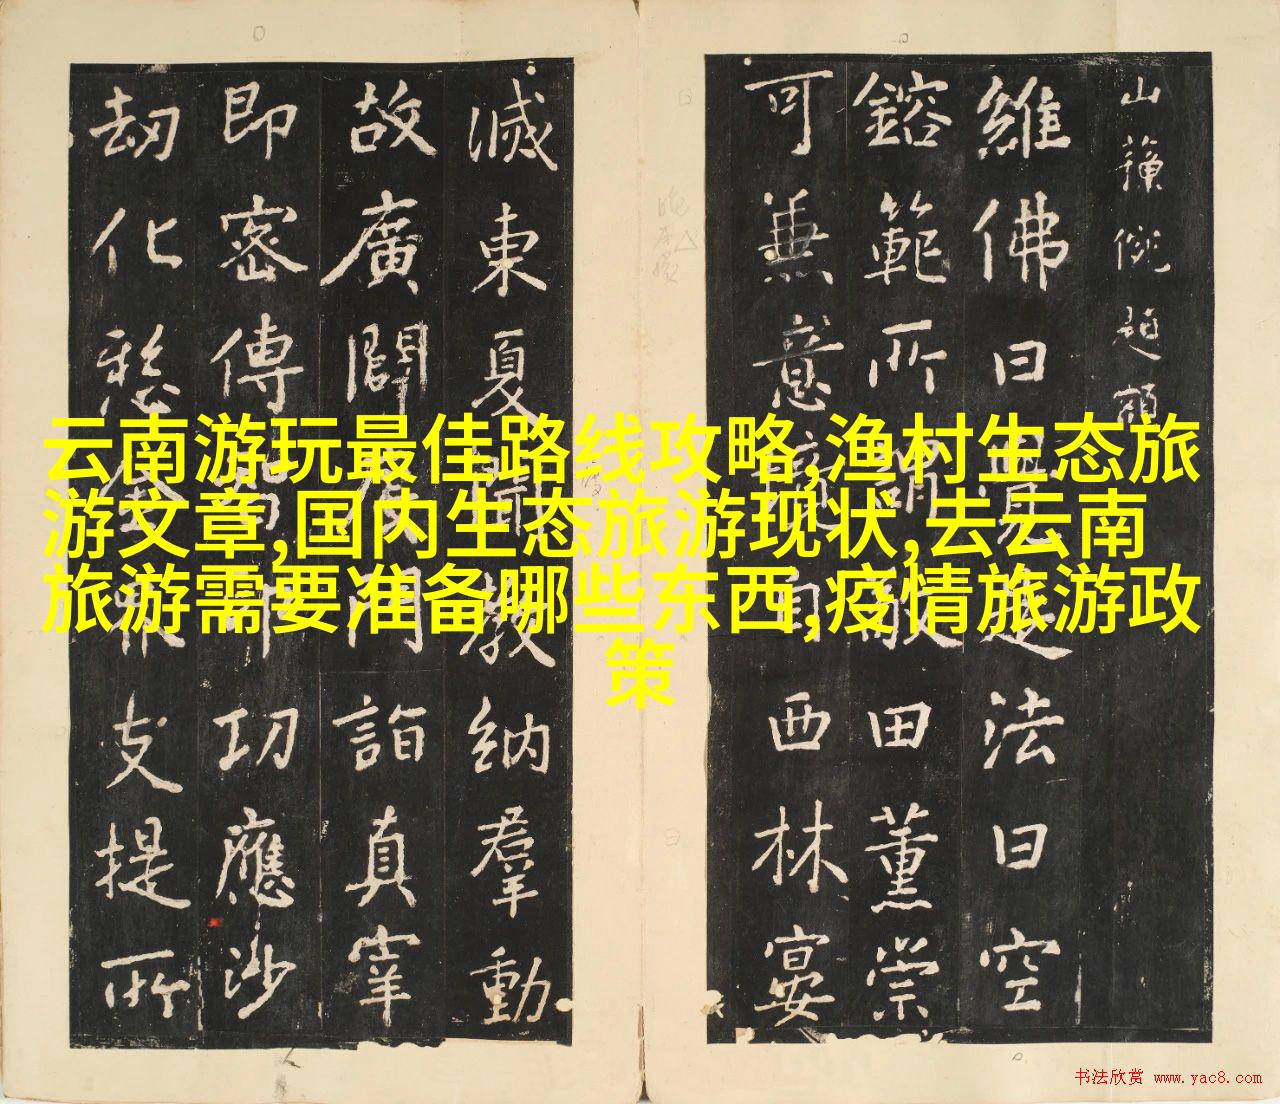 山蘓俛題額
維佛曰法曰空
鎔範所謂田薰崇
可兼意西林宴
滅東夏教納羣動
故廣闢門詣真宰
即密傳功應沙
劫化支提所
云南游玩最佳路线攻略,渔村生态旅
游文章,国内生态旅游现状,去云南
旅游需要准备哪些东西,疫情旅游政
策
书法欣赏 www.yac8.com